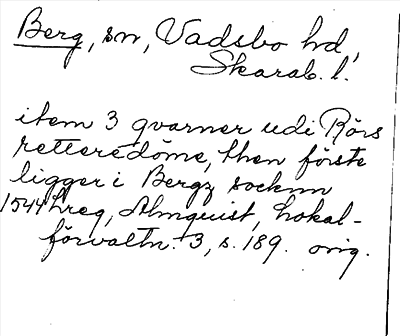 Berg, sn, Vadsbo hd,
Skarab. l.
item 3 qvarner udi Rörs
retteredöme, then förste
ligger i Bergz socknn
1544 hreg, Almquist, Lokal-
förvaltn. 3, s. 189. orig.